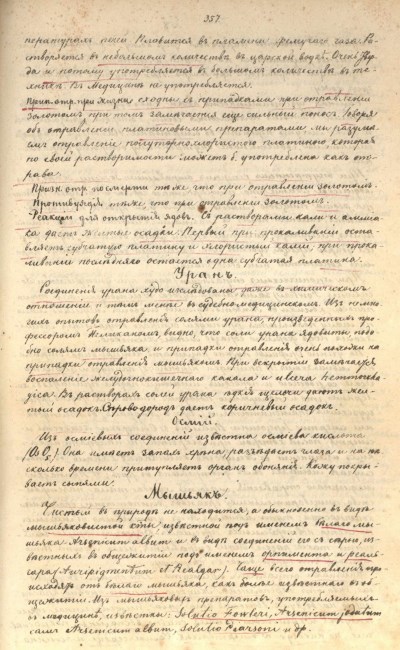 357.
пературахъ почти плавится въ пламени гремучаго газа. Ра-
створяется въ небольшомъ количествѣ въ царской водкѣ.
да и потому употребляется въ большомъ количествѣ въ те-
Въ Медицинѣ не употребляется.
Призн. отр. при жизни сходны съ припадками при отравленіи
золотомъ при томъ замѣчается еще сильный поносъ. Говоря
объ отравленіи платиновыми препаратами, мы разумѣ-
емъ отравленіе полуторохлористою платиною которая
по своей растворимости можетъ б. употреблена какъ от-
рава.
Призн. отр. по смерти тоже что при отравленіи золотомъ.
Противуядія тѣже что при отравленіи золотомъ.
Реакціи для открытія ядовъ. Съ растворами кали и аммі-
ака даетъ желтые осадки. Первый при прокаливаніи оста-
вляетъ губчатую платину и хлористый калій, при прока-
ливаніи послѣдняго остается одна губчатая платина.
Уранъ.
Соединенія урана худо изслѣдованы даже въ химическомъ
отношеніи и тѣмъ менѣе въ судебно-медицинскомъ. Изъ немно-
гихъ опытовъ отравленія солями урана, произведенныхъ про-
фессоромъ видно, что соли урана ядовиты подо-
бно солямъ мышьяка, и припадки отравленія очень похожи на
припадки отравленія мышьякомъ. При вскрытіи замѣчается
воспаленіе желудочнокишечнаго канала и
Въ растворахъ соли урана ѣдкія щелочи даютъ жел-
тый осадокъ. Сѣроводородъ даетъ коричневый осадокъ.
Осмій.
Изъ осміевыхъ соединеній извѣстна осміева кислота
Она имѣетъ запахъ хрѣна, разъѣдаетъ глаза и на нѣ-
сколько времени притупляетъ органъ обонянія. Кожу покры-
ваетъ
Мышьякъ.
Чистымъ въ природѣ не находится, а обыкновенно въ видѣ
мышьяковистой к-ты, извѣстной подъ именемъ бѣлаго мы-
шьяка Arsenicum album и въ видѣ соединеній его съ сѣрою, из-
вѣстныхъ въ общежитіи подъ именемъ орпимента и реаль-
гара (Auripigmentum et Realgar). Чаще всего отравленія про-
исходятъ отъ бѣлаго мышьяка, какъ болѣе извѣстнаго въ об-
щежитіи. Изъ мышьяковыхъ препаратовъ, употребляемыхъ
въ медицинѣ, извѣстны: Solutio Fowleri, Arsenicum jodatum
самъ Arsenicum album, Solutio Pearsoni и др.